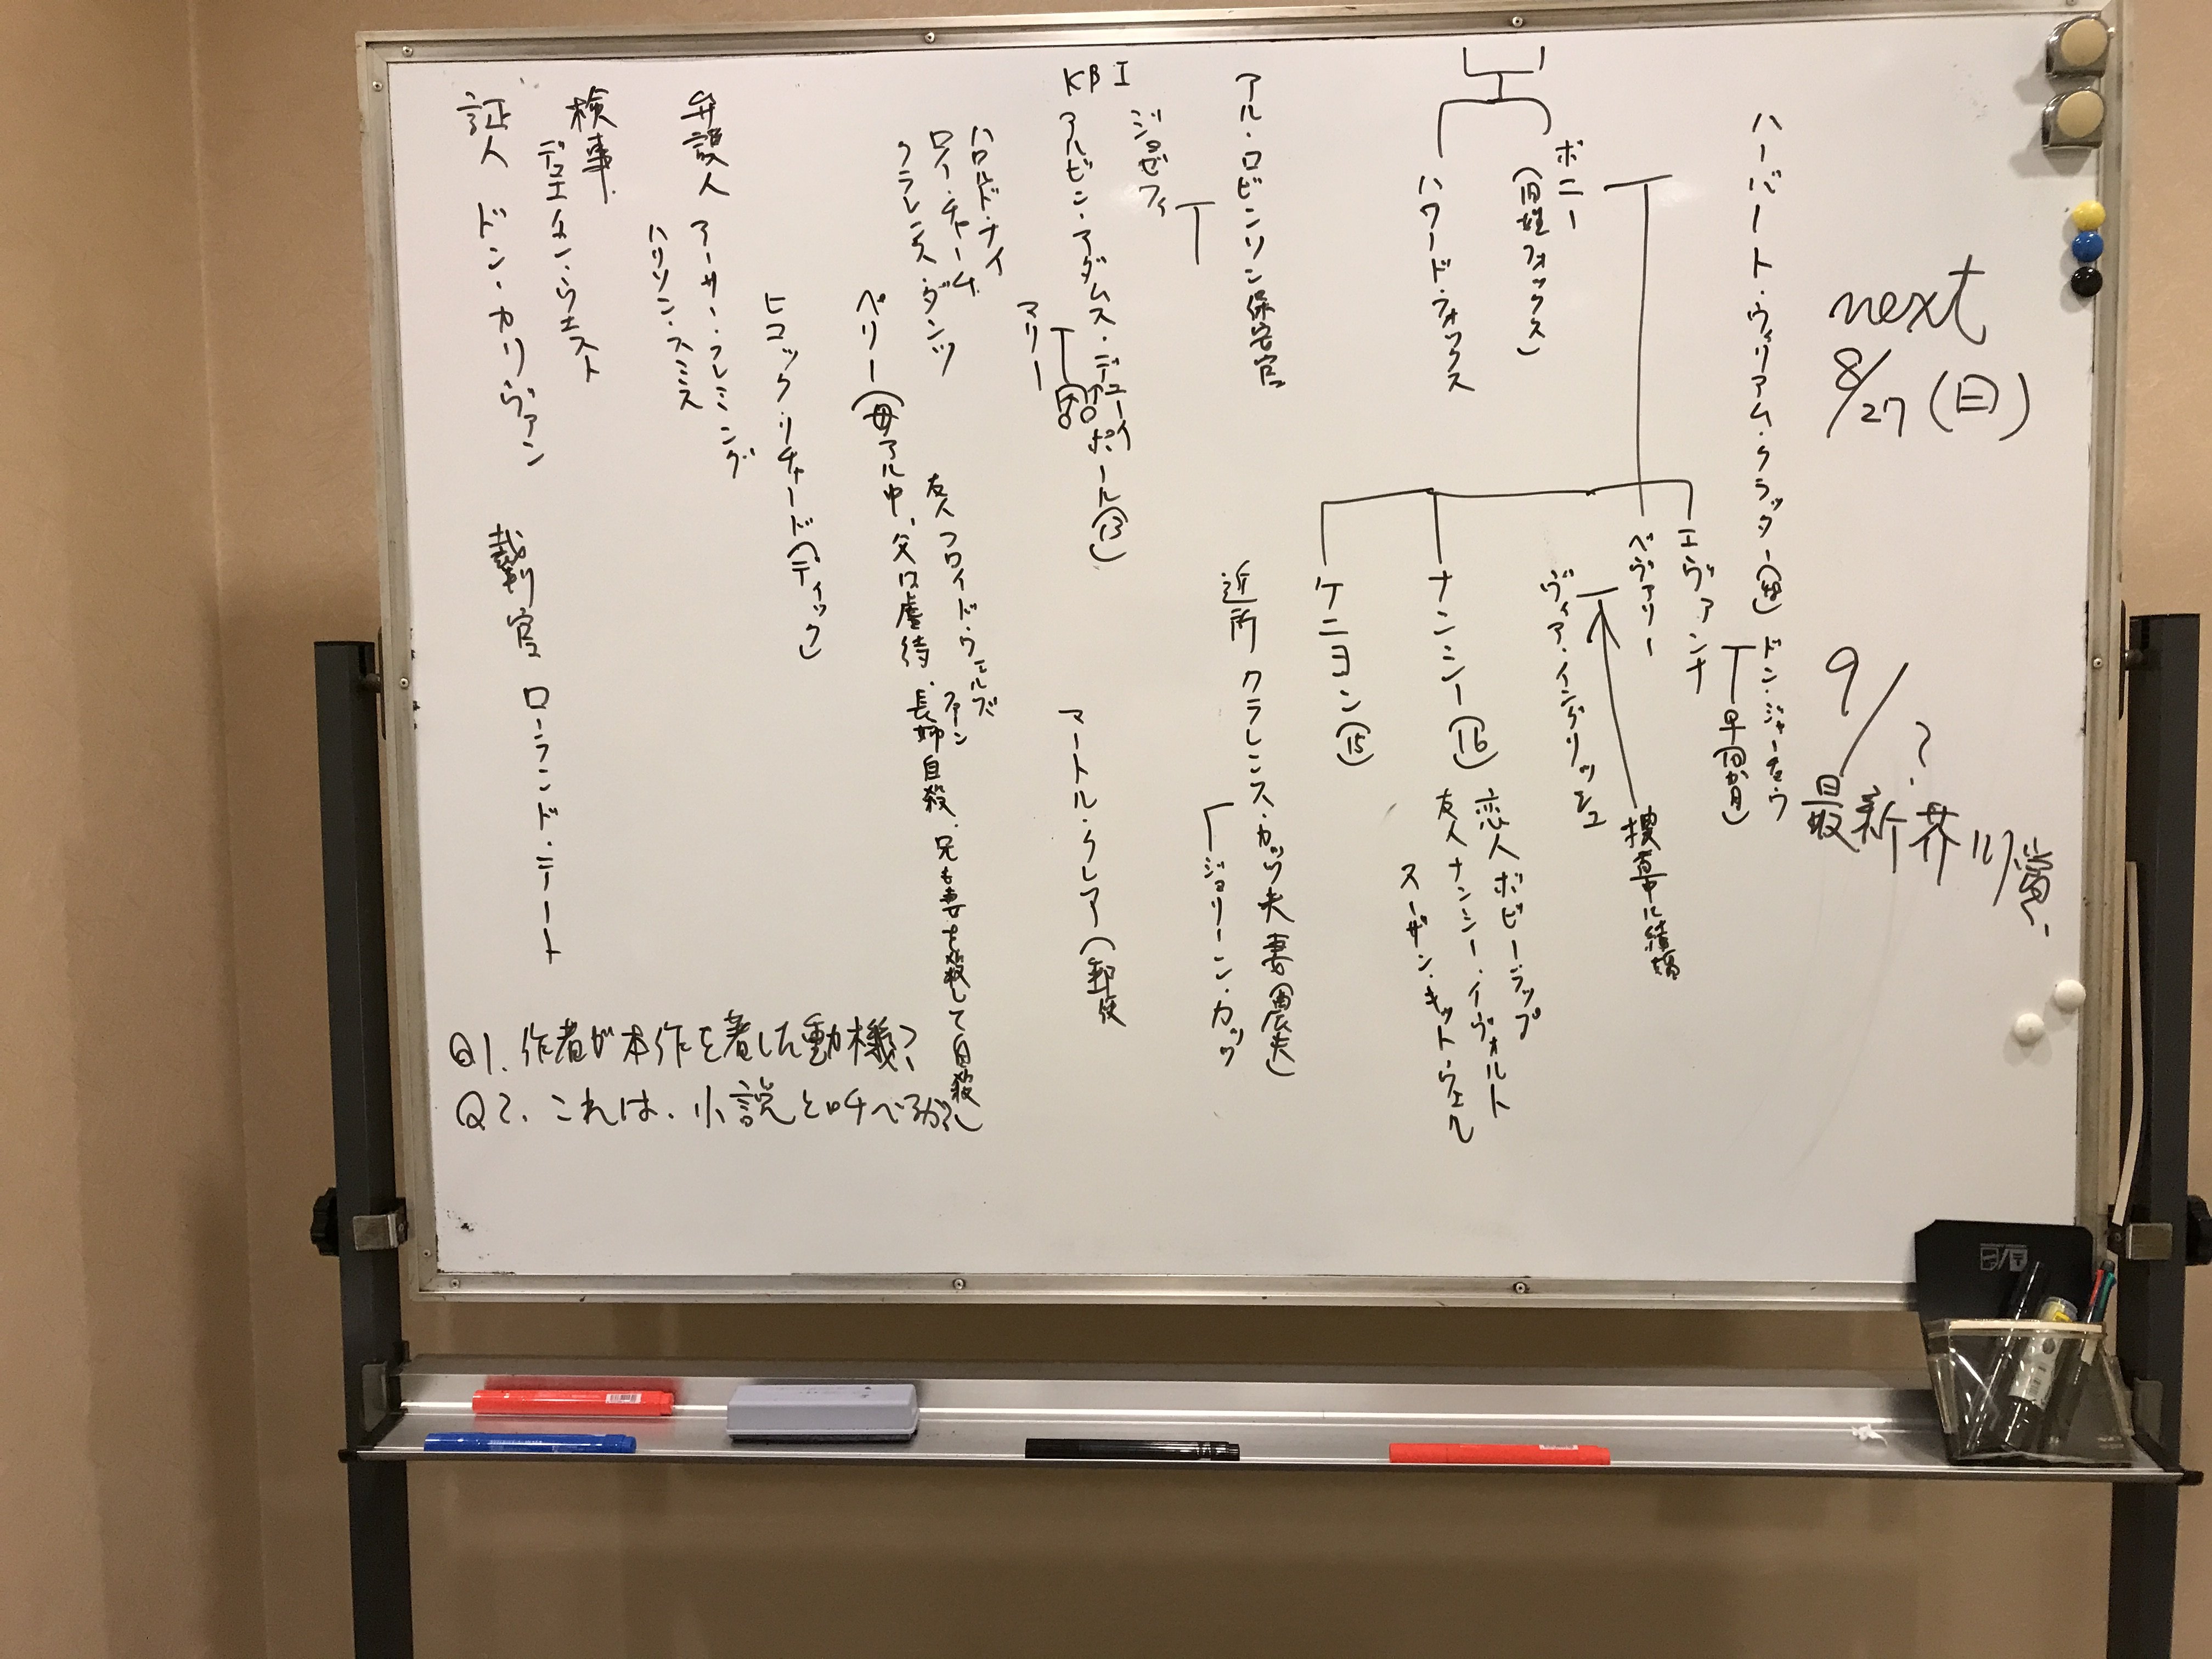 next
8/27(日)
9/?
最新芥川賞
ハーバート・ウィリアム・クラッター
ドン・ジャーチョウ
早
エヴァンナ
ベヴァリー
ヴィア・イングリッシュ
捜査中に結婚
ボニー
(旧姓フォックス)
ハワード・フォックス
ナンシー(16)
恋人 ボビー・ラップ
友人 ナンシー・イヴォルト
スーザン・キットウェル
ケニヨン(15)
アル・ロビンソン保安官
ジョゼフィ
近所 クラレンス・カッツ夫妻(農夫)
ジョリーン・カッツ
KBI
アルビン・アダムス・デューイ
ポール(13)
マリー
マートル・クレア(郵便
ハロルド・ナイ
ロイ・チャーチ
クラレンス・ダンツ
友人 フロイド・ウェルズ
ファーン
ペリー(母アル中、父は虐待、長姉自殺、兄も妻を殺して自殺)
ヒコック・リチャード(ディック)
弁護人 アーサー・フレミング
ハリソン・スミス
検事
デュエイン・ウエスト
証人 ドン・カリヴァン
裁判官 ローランド・ニート
Q1. 作者が本作を著した動機?
Q2. これは、小説と呼べるか?